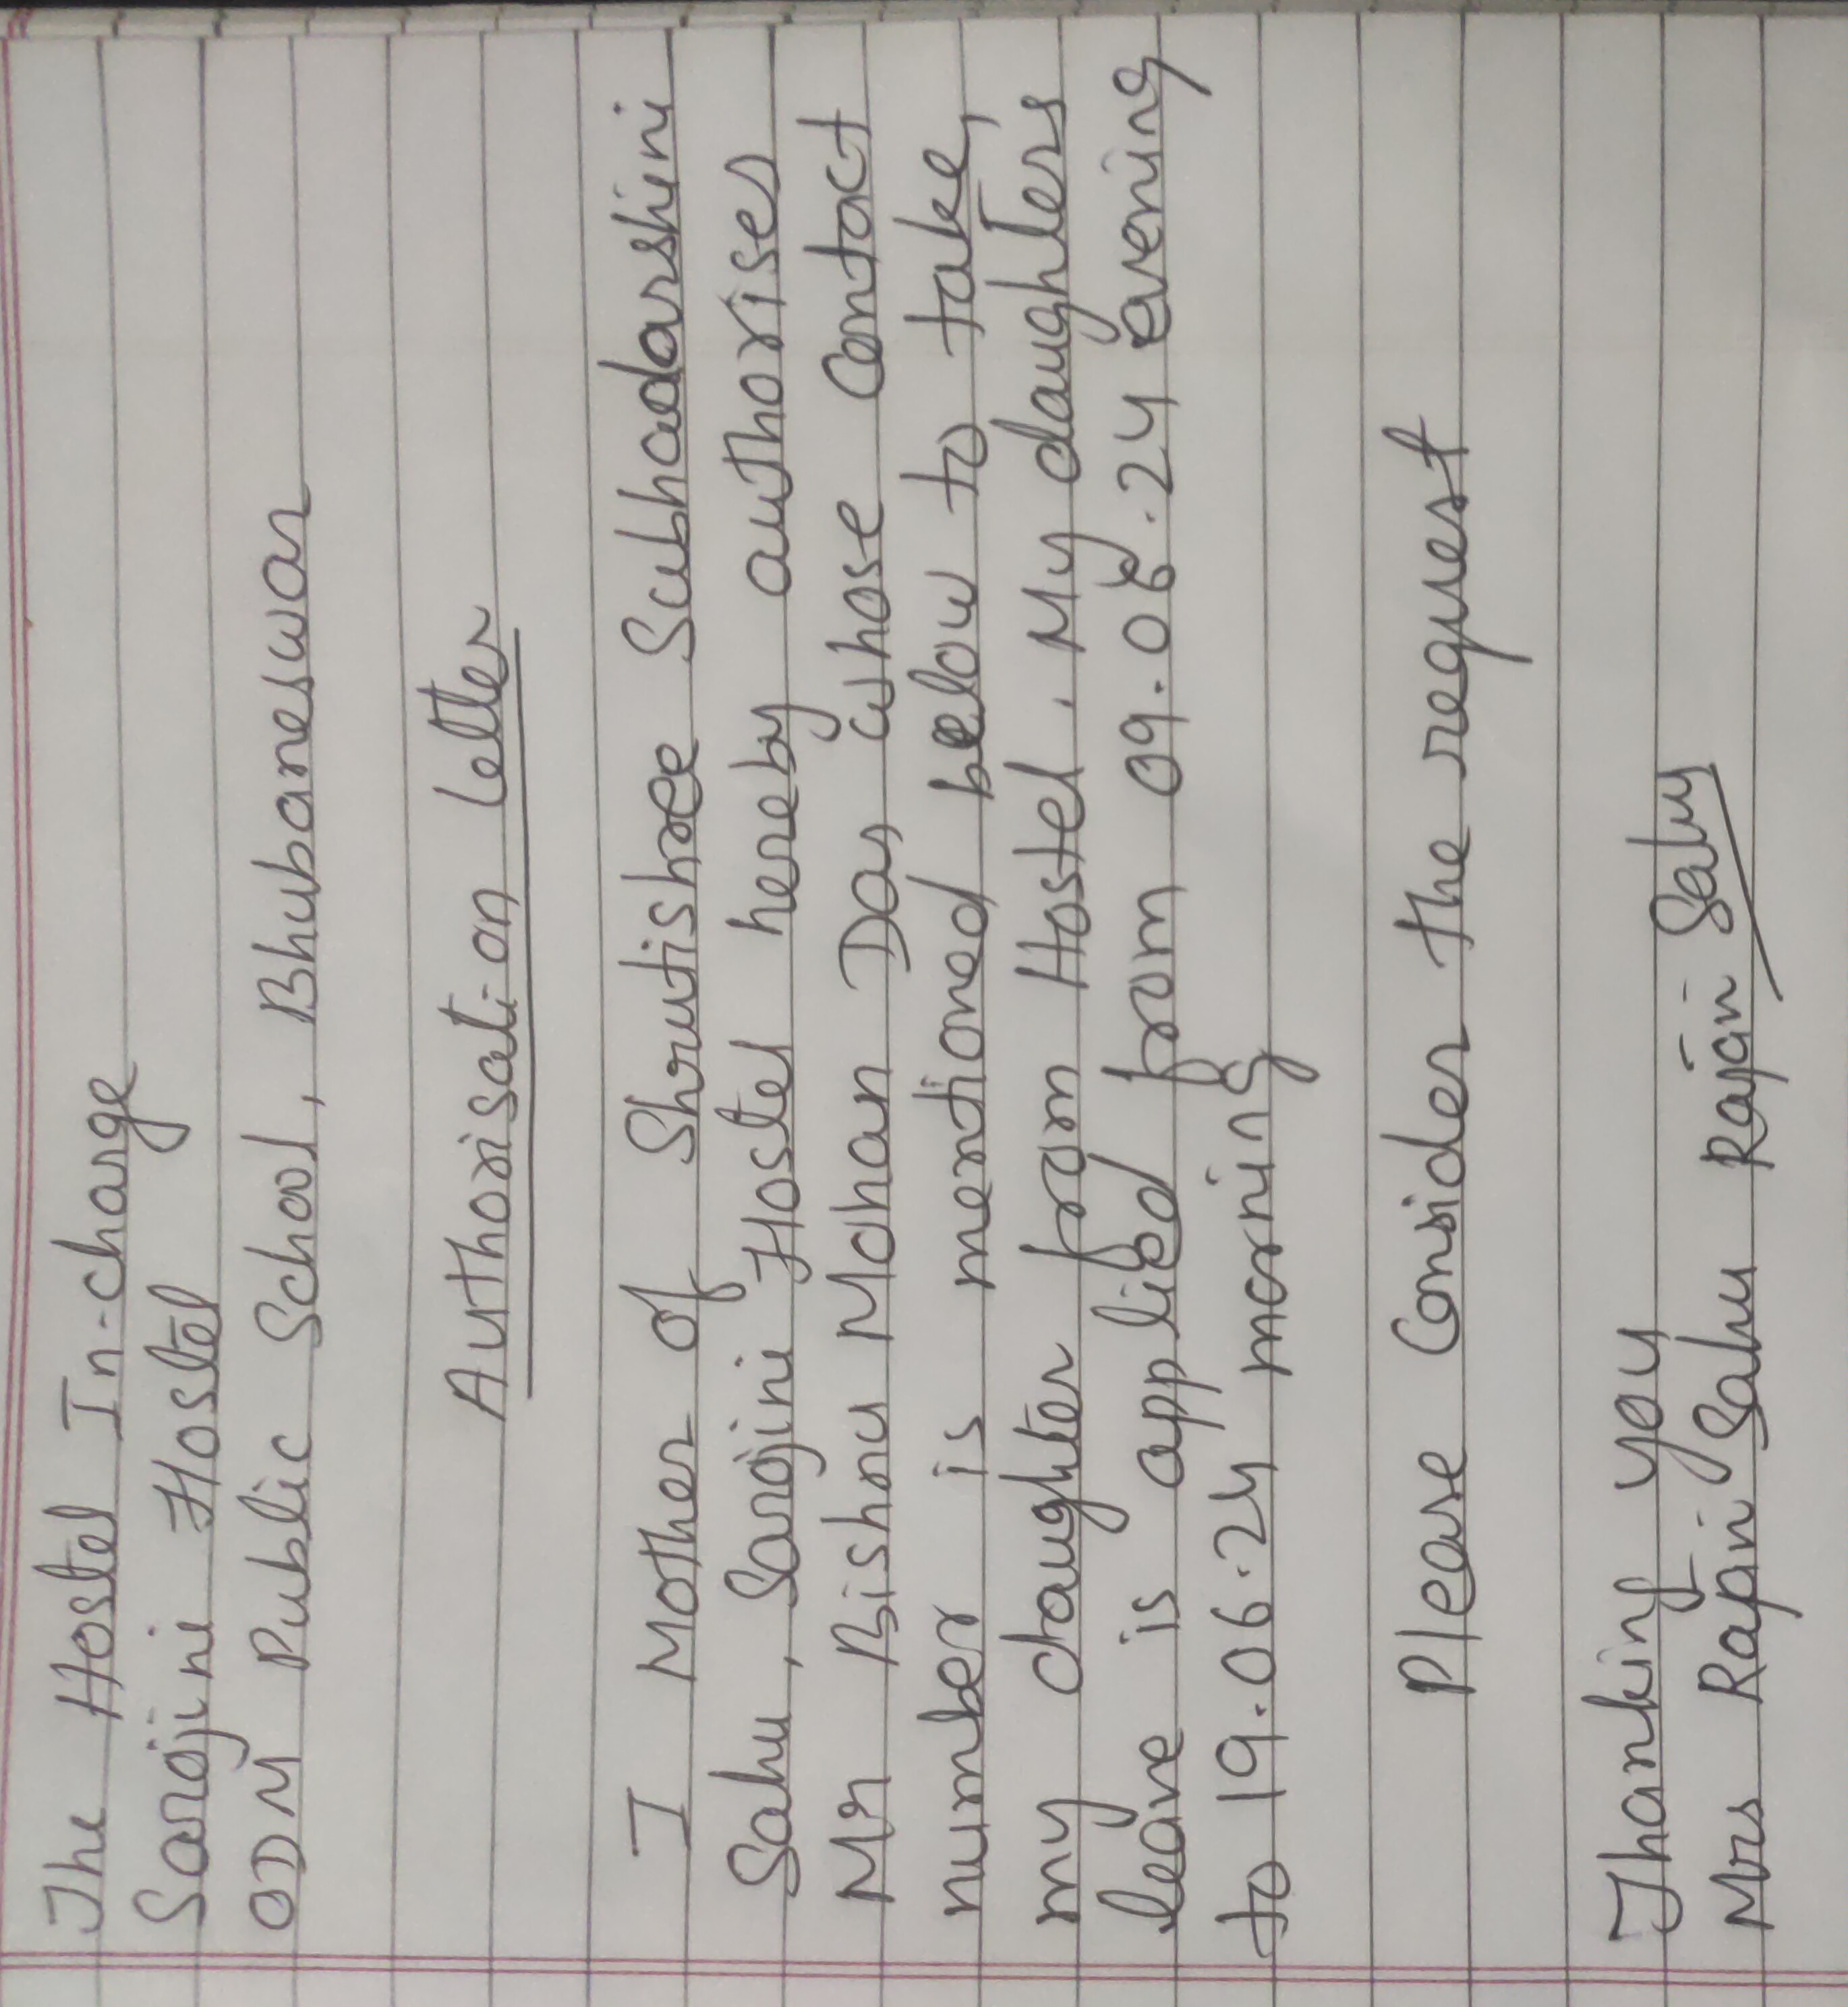 The Hostel In-charge
Sarojini Hostel
ODM Public School, Bhubaneswar
Authorisation Letter
I Mother of Shrutishree Subhadarshini
Sahu, Sarojini Hostel hereby authorises
Mr Bishnu Mohan Das whose contact
number is mentioned below to take
my daughter from Hostel. My daughters
leave is applied from 09.06.24 evening
to 19.06.24 morning
Please Consider the request
Thanking you
Mrs Rajin Sahu Rajin Sahu